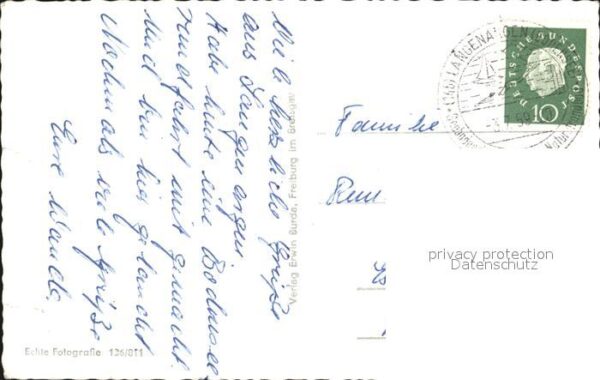 Viele herzliche Grüße
aus Langenargen
Habe heute eine Bodensee
rundfahrt mit gemacht.
Und bin hier gelandet
Nochmals viele Grüße
Eure
Echte Fotografie 126/811
Verlag Erwin Burda, Freiburg im Breisgau
Familie
LANGENARGEN
DEUTSCHE BUNDESPOST
10
59
privacy protection
Datenschutz